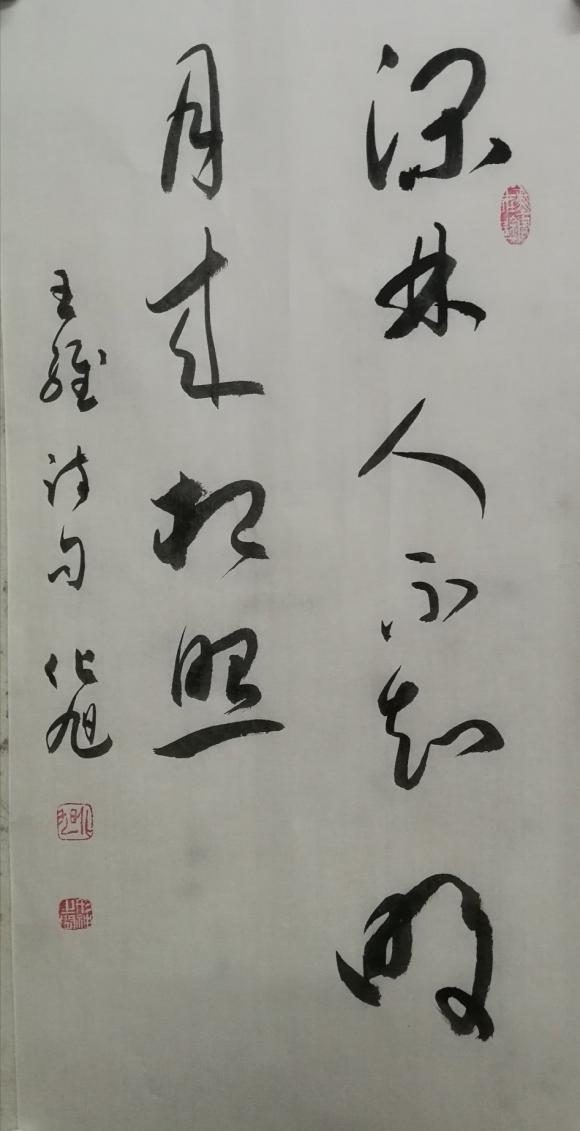 深林人不知明
月来相照
王维诗句 化旭